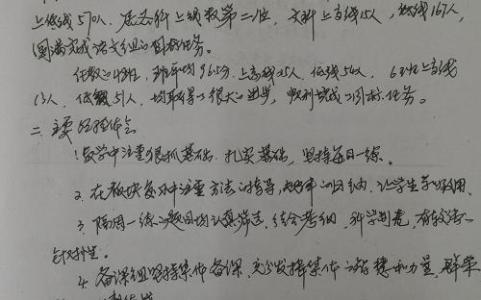 上线570人，居各科上线数第二位，文科上高线15人，低线167人，
圆满完成语文组的目标任务。
任教的48班，班平均96.5分，上高线25人，低线54人，62班上高线
13人，低线51人，均取得了很大的进步，顺利完成了目标任务。
二、主要经验体会
1.教学中注重狠抓基础，扎实基础，坚持每日一练。
2.在板块复习中注重方法的指导，归纳，让学生学以致用。
3.隔周一练的题目均认真筛选，结合考纲，科学制卷，有较强的
针对性。
4.备课组坚持集体备课，充分发挥集体的智慧和力量，群策